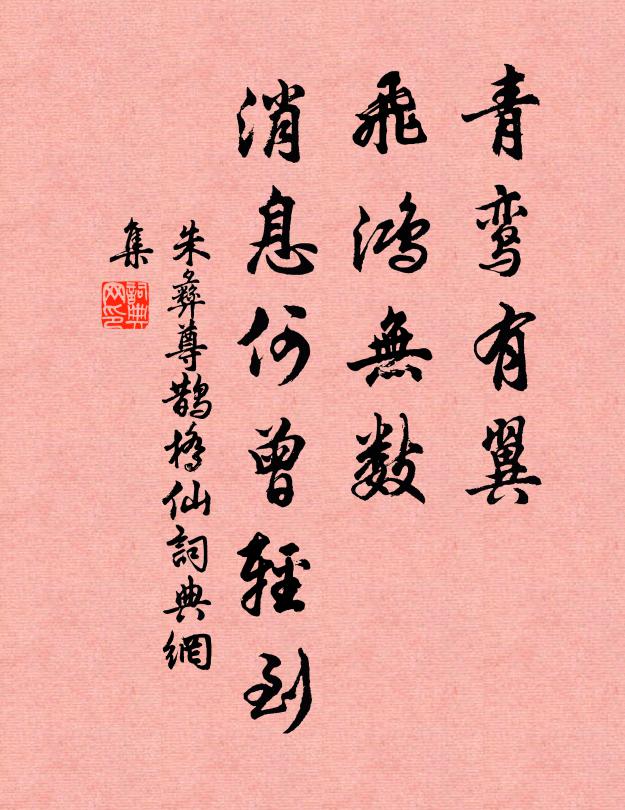 青鸾有翼
飛鴻無数
消息何曾輕到
朱彝尊鵲橋仙詞典網
集
詞典
网印